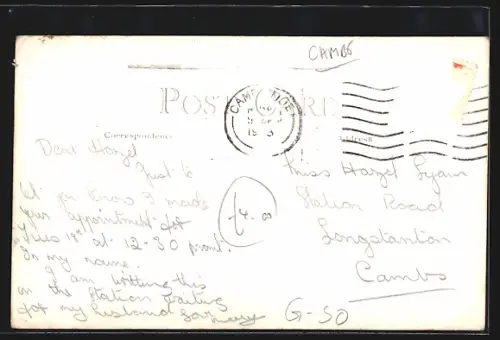 CAMBS
POST CARD
Correspondence
Address
CAMBRIDGE
Dear Hazel
Just to
let you know I made
your appointment for
Tues 18th at 12-30 prompt.
In my name.
I am writing this
on the station waiting
for my husband
£4-00
Miss Hazel
Station Road
Longstanton
Cambs
G-50